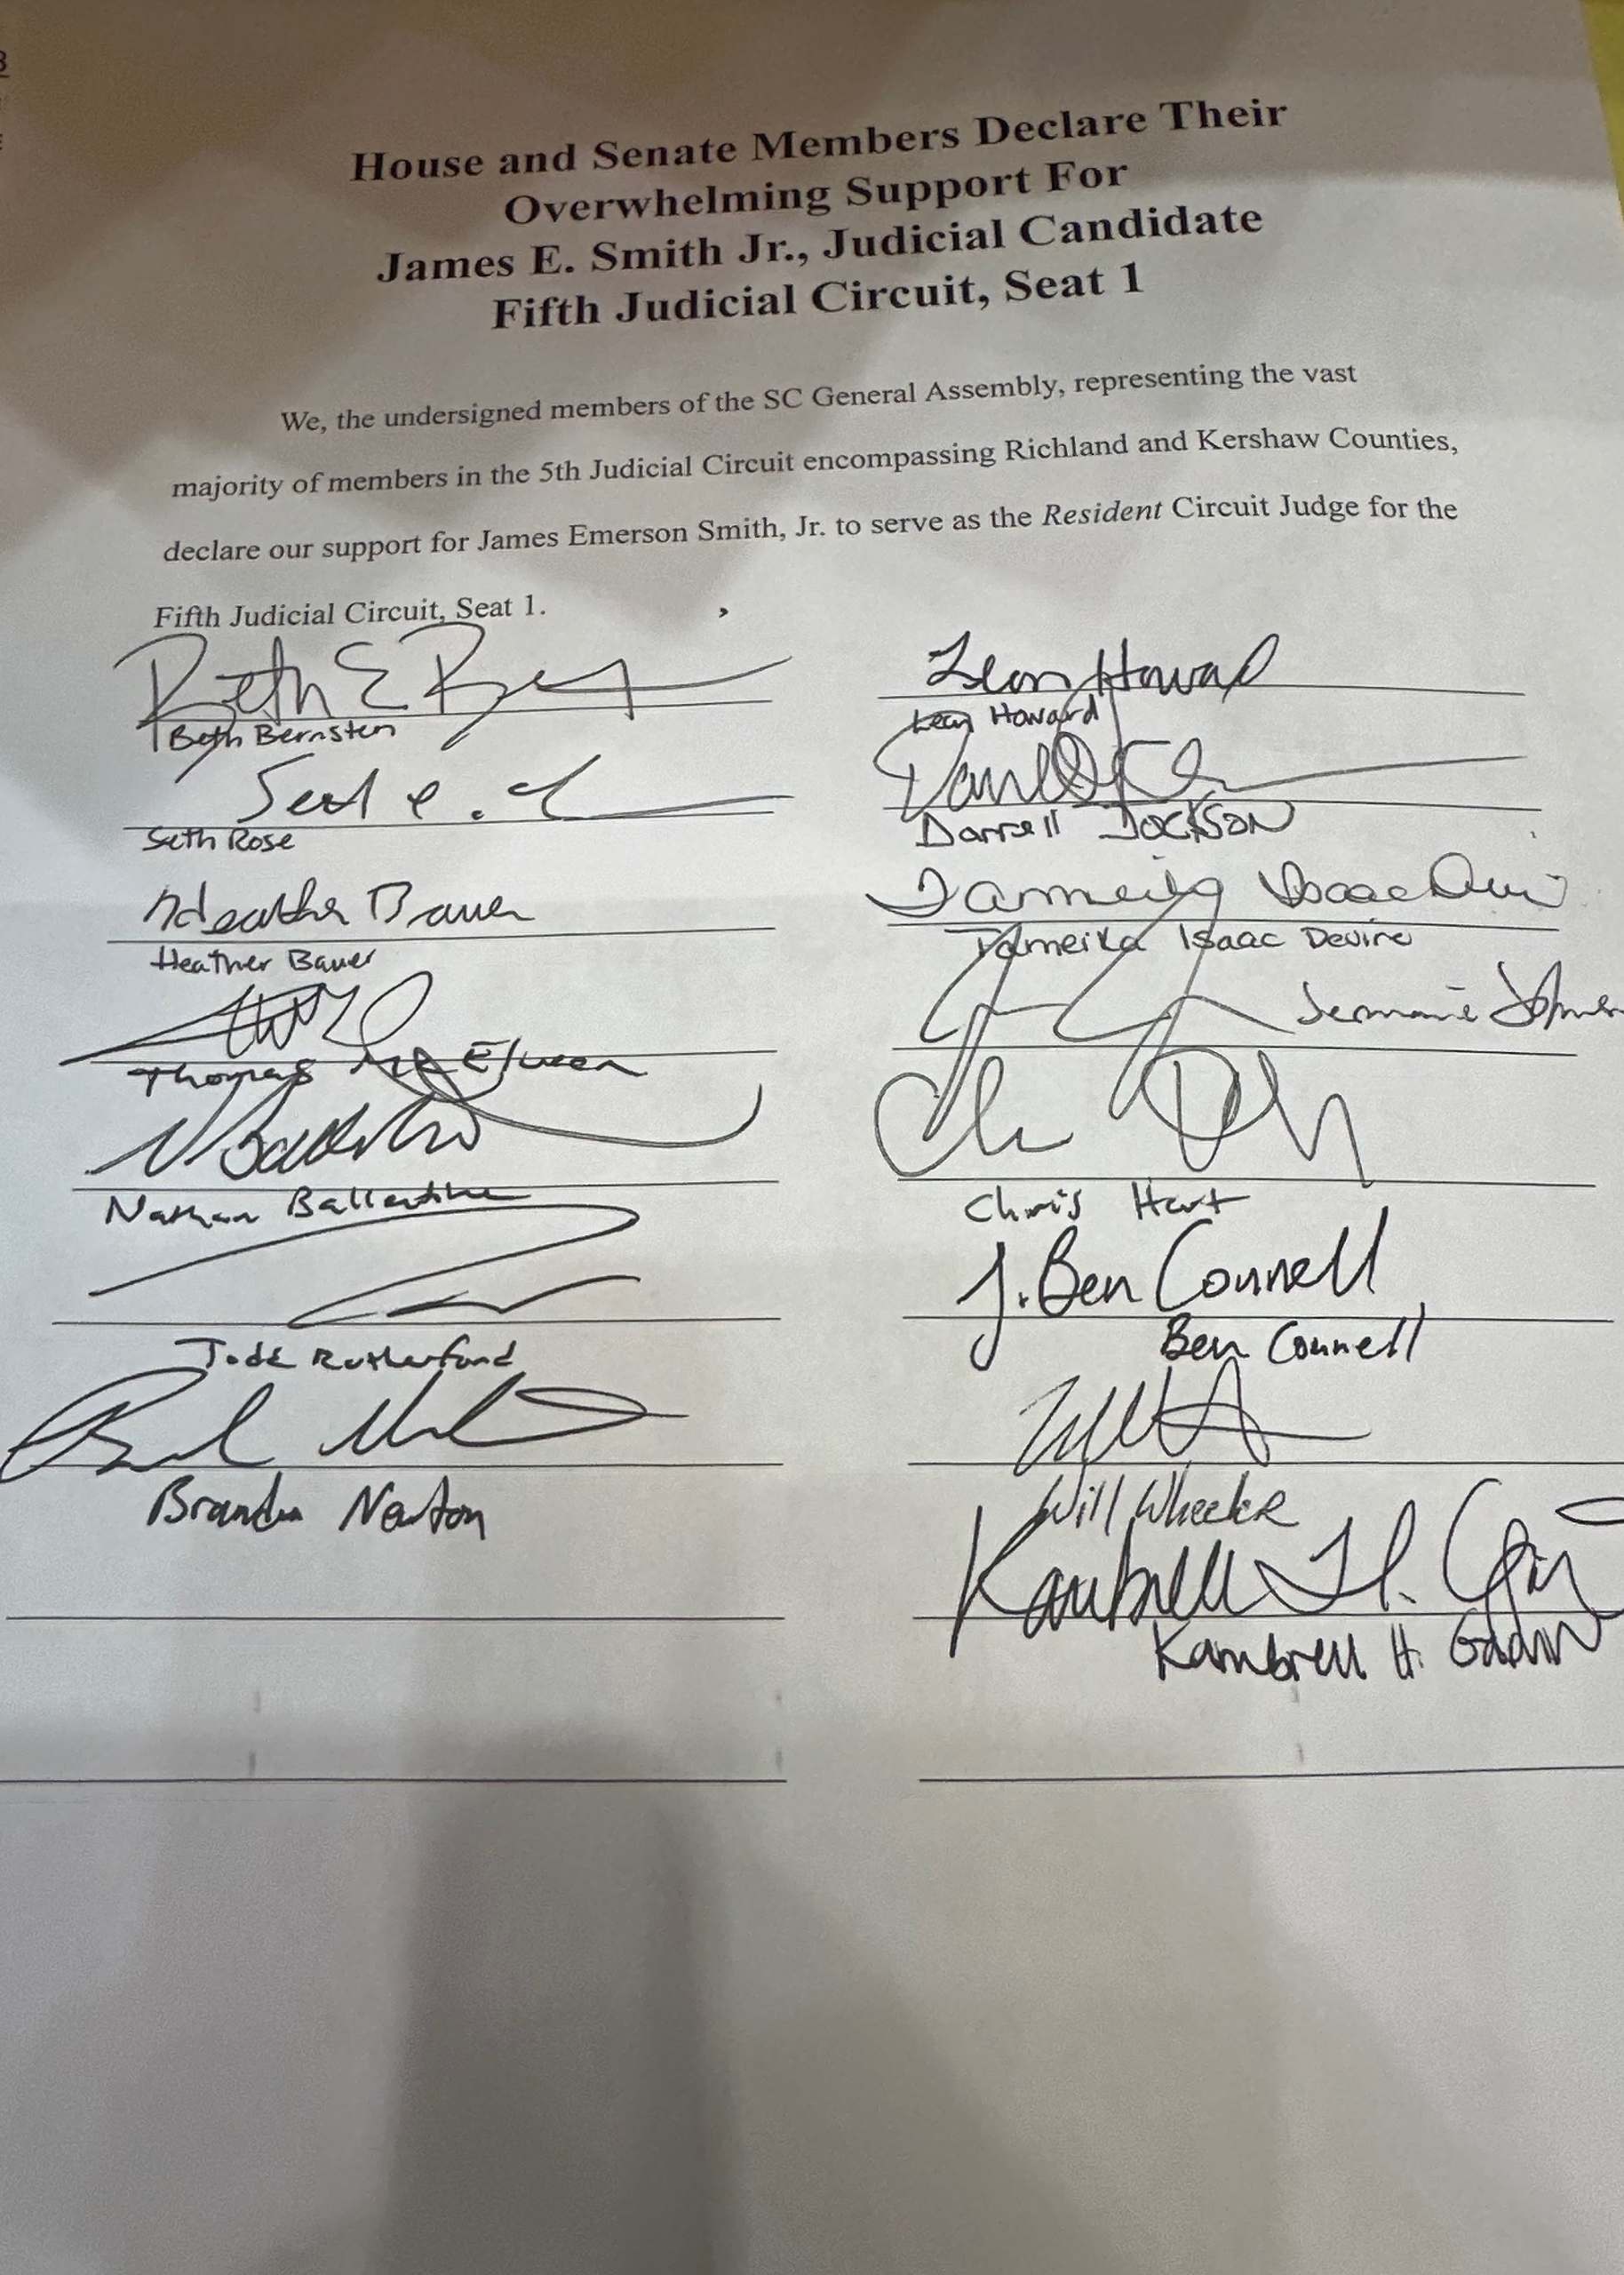 House and Senate Members Declare Their
Overwhelming Support For
James E. Smith Jr., Judicial Candidate
Fifth Judicial Circuit, Seat 1
We, the undersigned members of the SC General Assembly, representing the vast
majority of members in the 5th Judicial Circuit encompassing Richland and Kershaw Counties,
declare our support for James Emerson Smith, Jr. to serve as the Resident Circuit Judge for the
Fifth Judicial Circuit, Seat 1.
Beth E
Beth Bernstein
Seth Rose
Heather Bauer
Heather Bauer
Thomas McElveen
Nathan Ballentine
Todd Rutherford
Brandon Newton
Leon Howard
Leon Howard
Darrell Jackson
Tameika Isaac Devine
Tameika Isaac Devine
Jermaine Johnson
Chris Hart
J. Ben Connell
Ben Connell
Will Wheeler
Kambrell H.
Kambrell H. Garvin